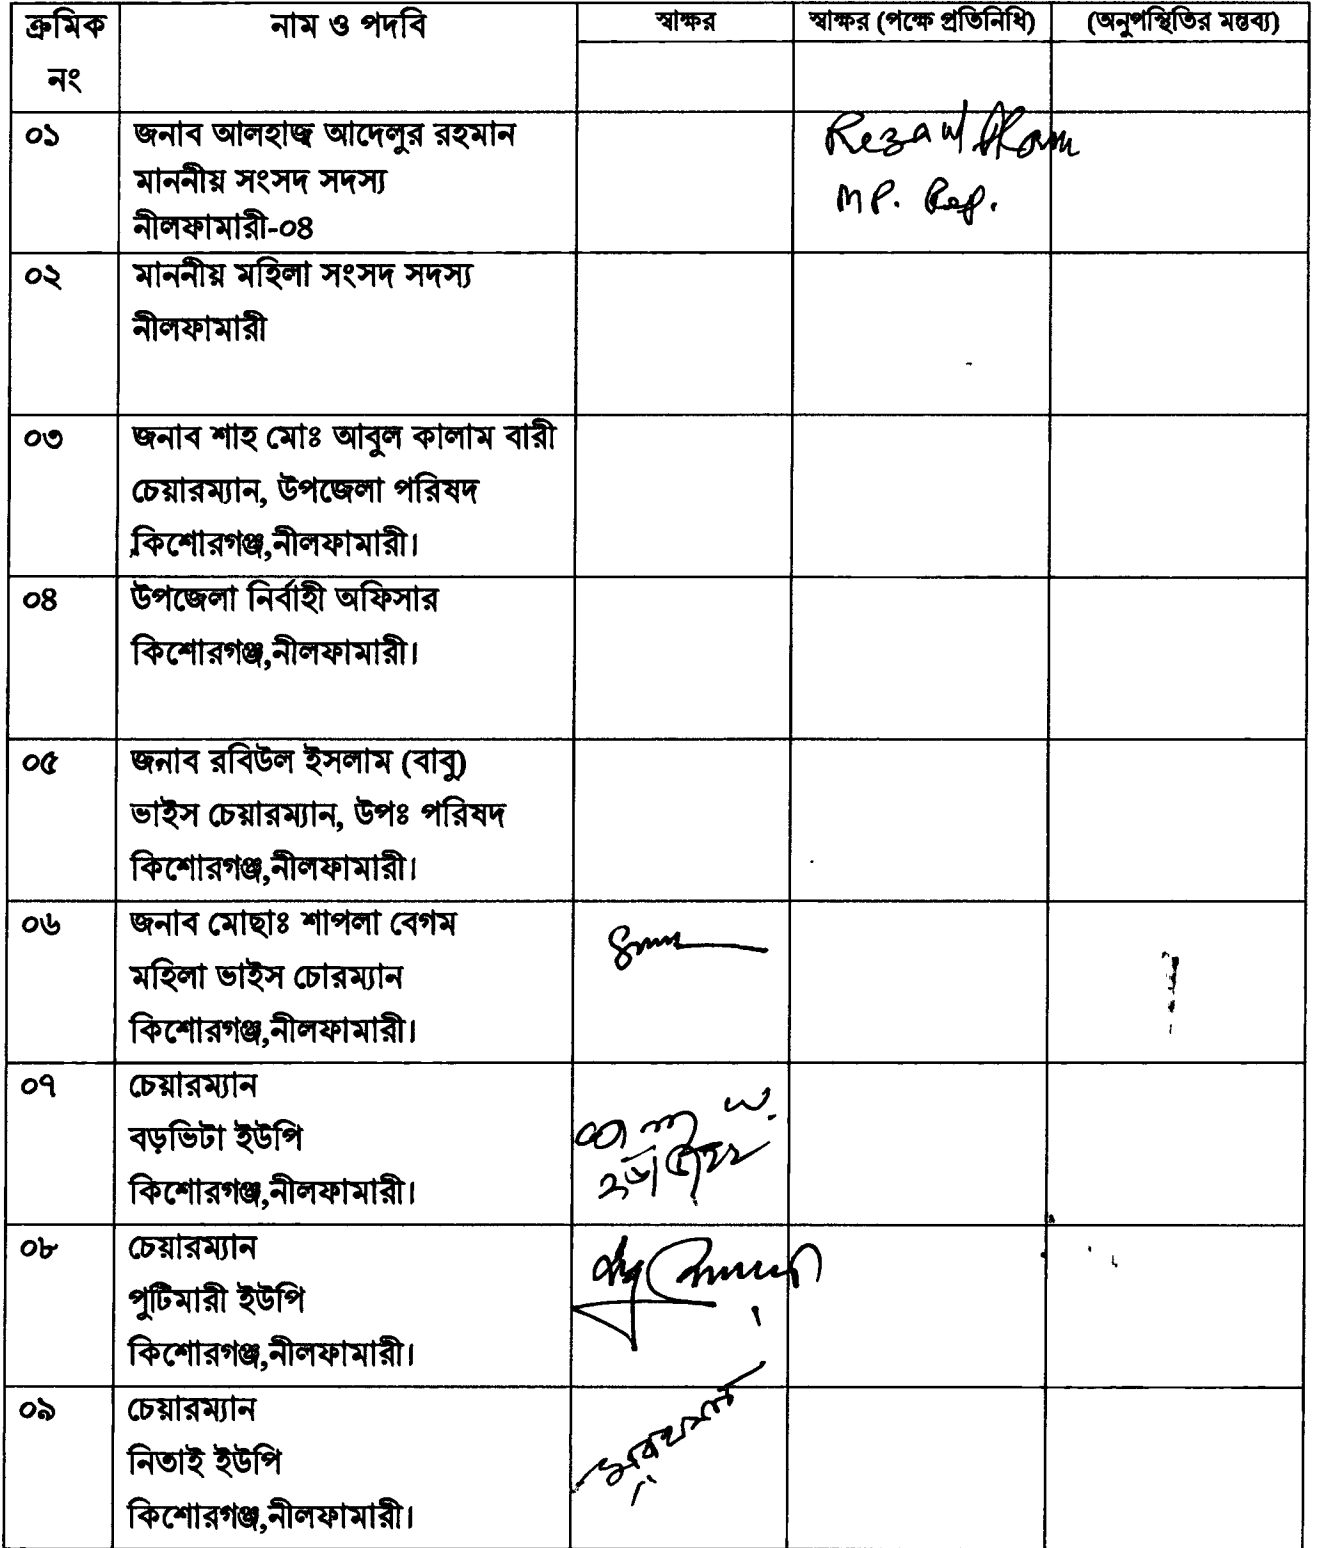 ক্রমিক নং	নাম ও পদবি	স্বাক্ষর	স্বাক্ষর (পক্ষে প্রতিনিধি)	(অনুপস্থিতির মন্তব্য)
০১	জনাব আলহাজ্ব আদেলুর রহমান
মাননীয় সংসদ সদস্য
নীলফামারী-০৪
MP. Rep.
০২	মাননীয় মহিলা সংসদ সদস্য
নীলফামারী
০৩	জনাব শাহ মোঃ আবুল কালাম বারী
চেয়ারম্যান, উপজেলা পরিষদ
কিশোরগঞ্জ,নীলফামারী।
০৪	উপজেলা নির্বাহী অফিসার
কিশোরগঞ্জ,নীলফামারী।
০৫	জনাব রবিউল ইসলাম (বাবু)
ভাইস চেয়ারম্যান, উপঃ পরিষদ
কিশোরগঞ্জ,নীলফামারী।
০৬	জনাব মোছাঃ শাপলা বেগম
মহিলা ভাইস চোরম্যান
কিশোরগঞ্জ,নীলফামারী।
০৭	চেয়ারম্যান
বড়ভিটা ইউপি
কিশোরগঞ্জ,নীলফামারী।
০৮	চেয়ারম্যান
পুটিমারী ইউপি
কিশোরগঞ্জ,নীলফামারী।
০৯	চেয়ারম্যান
নিতাই ইউপি
কিশোরগঞ্জ,নীলফামারী।